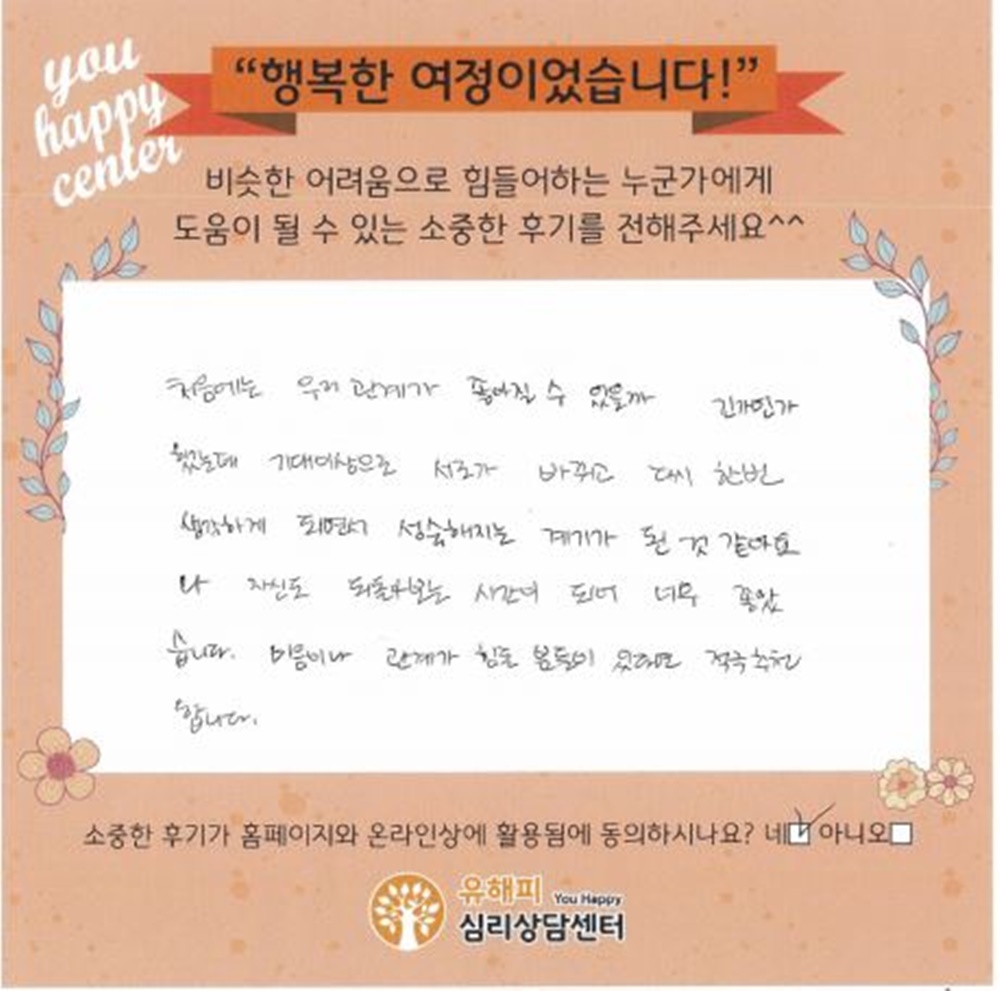 you
happy
center
“행복한 여정이었습니다!”
비슷한 어려움으로 힘들어하는 누군가에게
도움이 될 수 있는 소중한 후기를 전해주세요^^
처음에는 우리 관계가 좋아질 수 있을까 긴가민가
했는데 기대이상으로 서로가 바뀌고 다시 한번
생각하게 되면서 성숙해지는 계기가 된 것 같아요
나 자신도 되돌아보는 시간이 되어 너무 좋았
습니다. 마음이나 관계가 힘든 분들이 있다면 적극추천
합니다.
소중한 후기가 홈페이지와 온라인상에 활용됨에 동의하시나요? 네 아니오
유해피 You Happy
심리상담센터